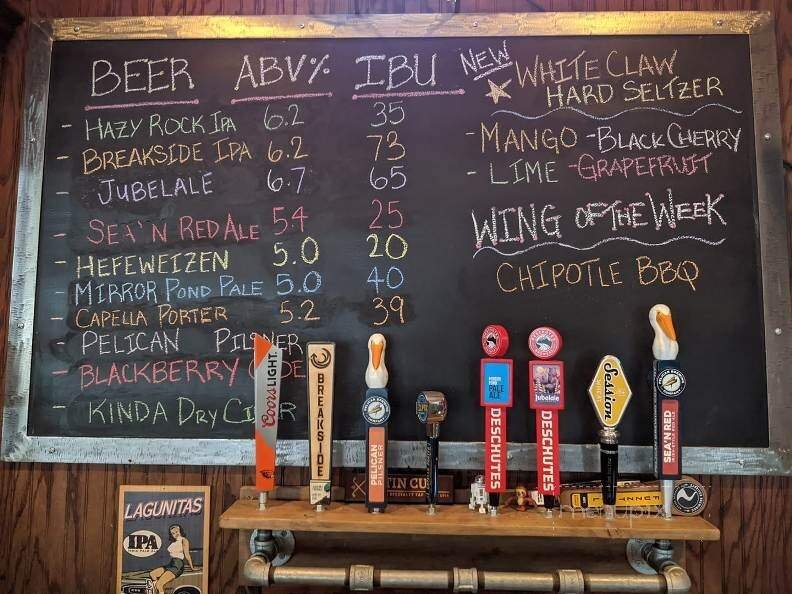 BEER ABV% IBU
- HAZY ROCK IPA 6.2 35
- BREAKSIDE IPA 6.2 73
- JUBELALE 6.7 65
- SEA'N RED ALE 5.4 25
- HEFEWEIZEN 5.0 20
- MIRROR POND PALE 5.0 40
- CAPELLA PORTER 5.2 39
- PELICAN PILSNER
- BLACKBERRY
- KINDA DRY
NEW WHITE CLAW
HARD SELTZER
- MANGO - BLACK CHERRY
- LIME - GRAPEFRUIT
WING OF THE WEEK
CHIPOTLE BBQ
Coors LIGHT
BREAKSIDE
PELICAN
PILSNER
PALE
ALE
DESCHUTES
Jubelale
DESCHUTES
Session
SEA'N RED
TIN CU
LAGUNITAS
IPA